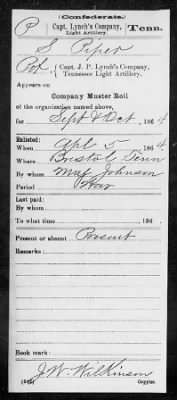 Confederate.
P Capt. Lynch's Company, Light Artillery. Tenn.
S Piper
Pvt, Capt. J. P. Lynch's Company, Tennessee Light Artillery.
Appears on
Company Muster Roll
of the organization named above,
for Sept & Oct, 1864
Enlisted:
When Apl 5, 1864
Where Bristol Tenn
By whom Maj Johnson
Period War
Last paid:
By whom
To what time , 186 .
Present or absent Present
Remarks:
Book mark:
J. W. Wilkinson
(642) Copyist.